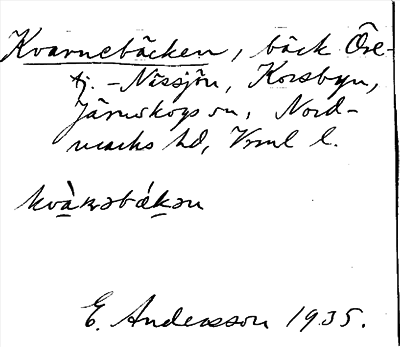 Kvarnebäcken, bäck Öre-
tj. - Nässjön, Korsbyn,
Järnskogs sn, Nord-
marks hd, Vrml l.
kvàɳəbákən
E. Andersson 1935.